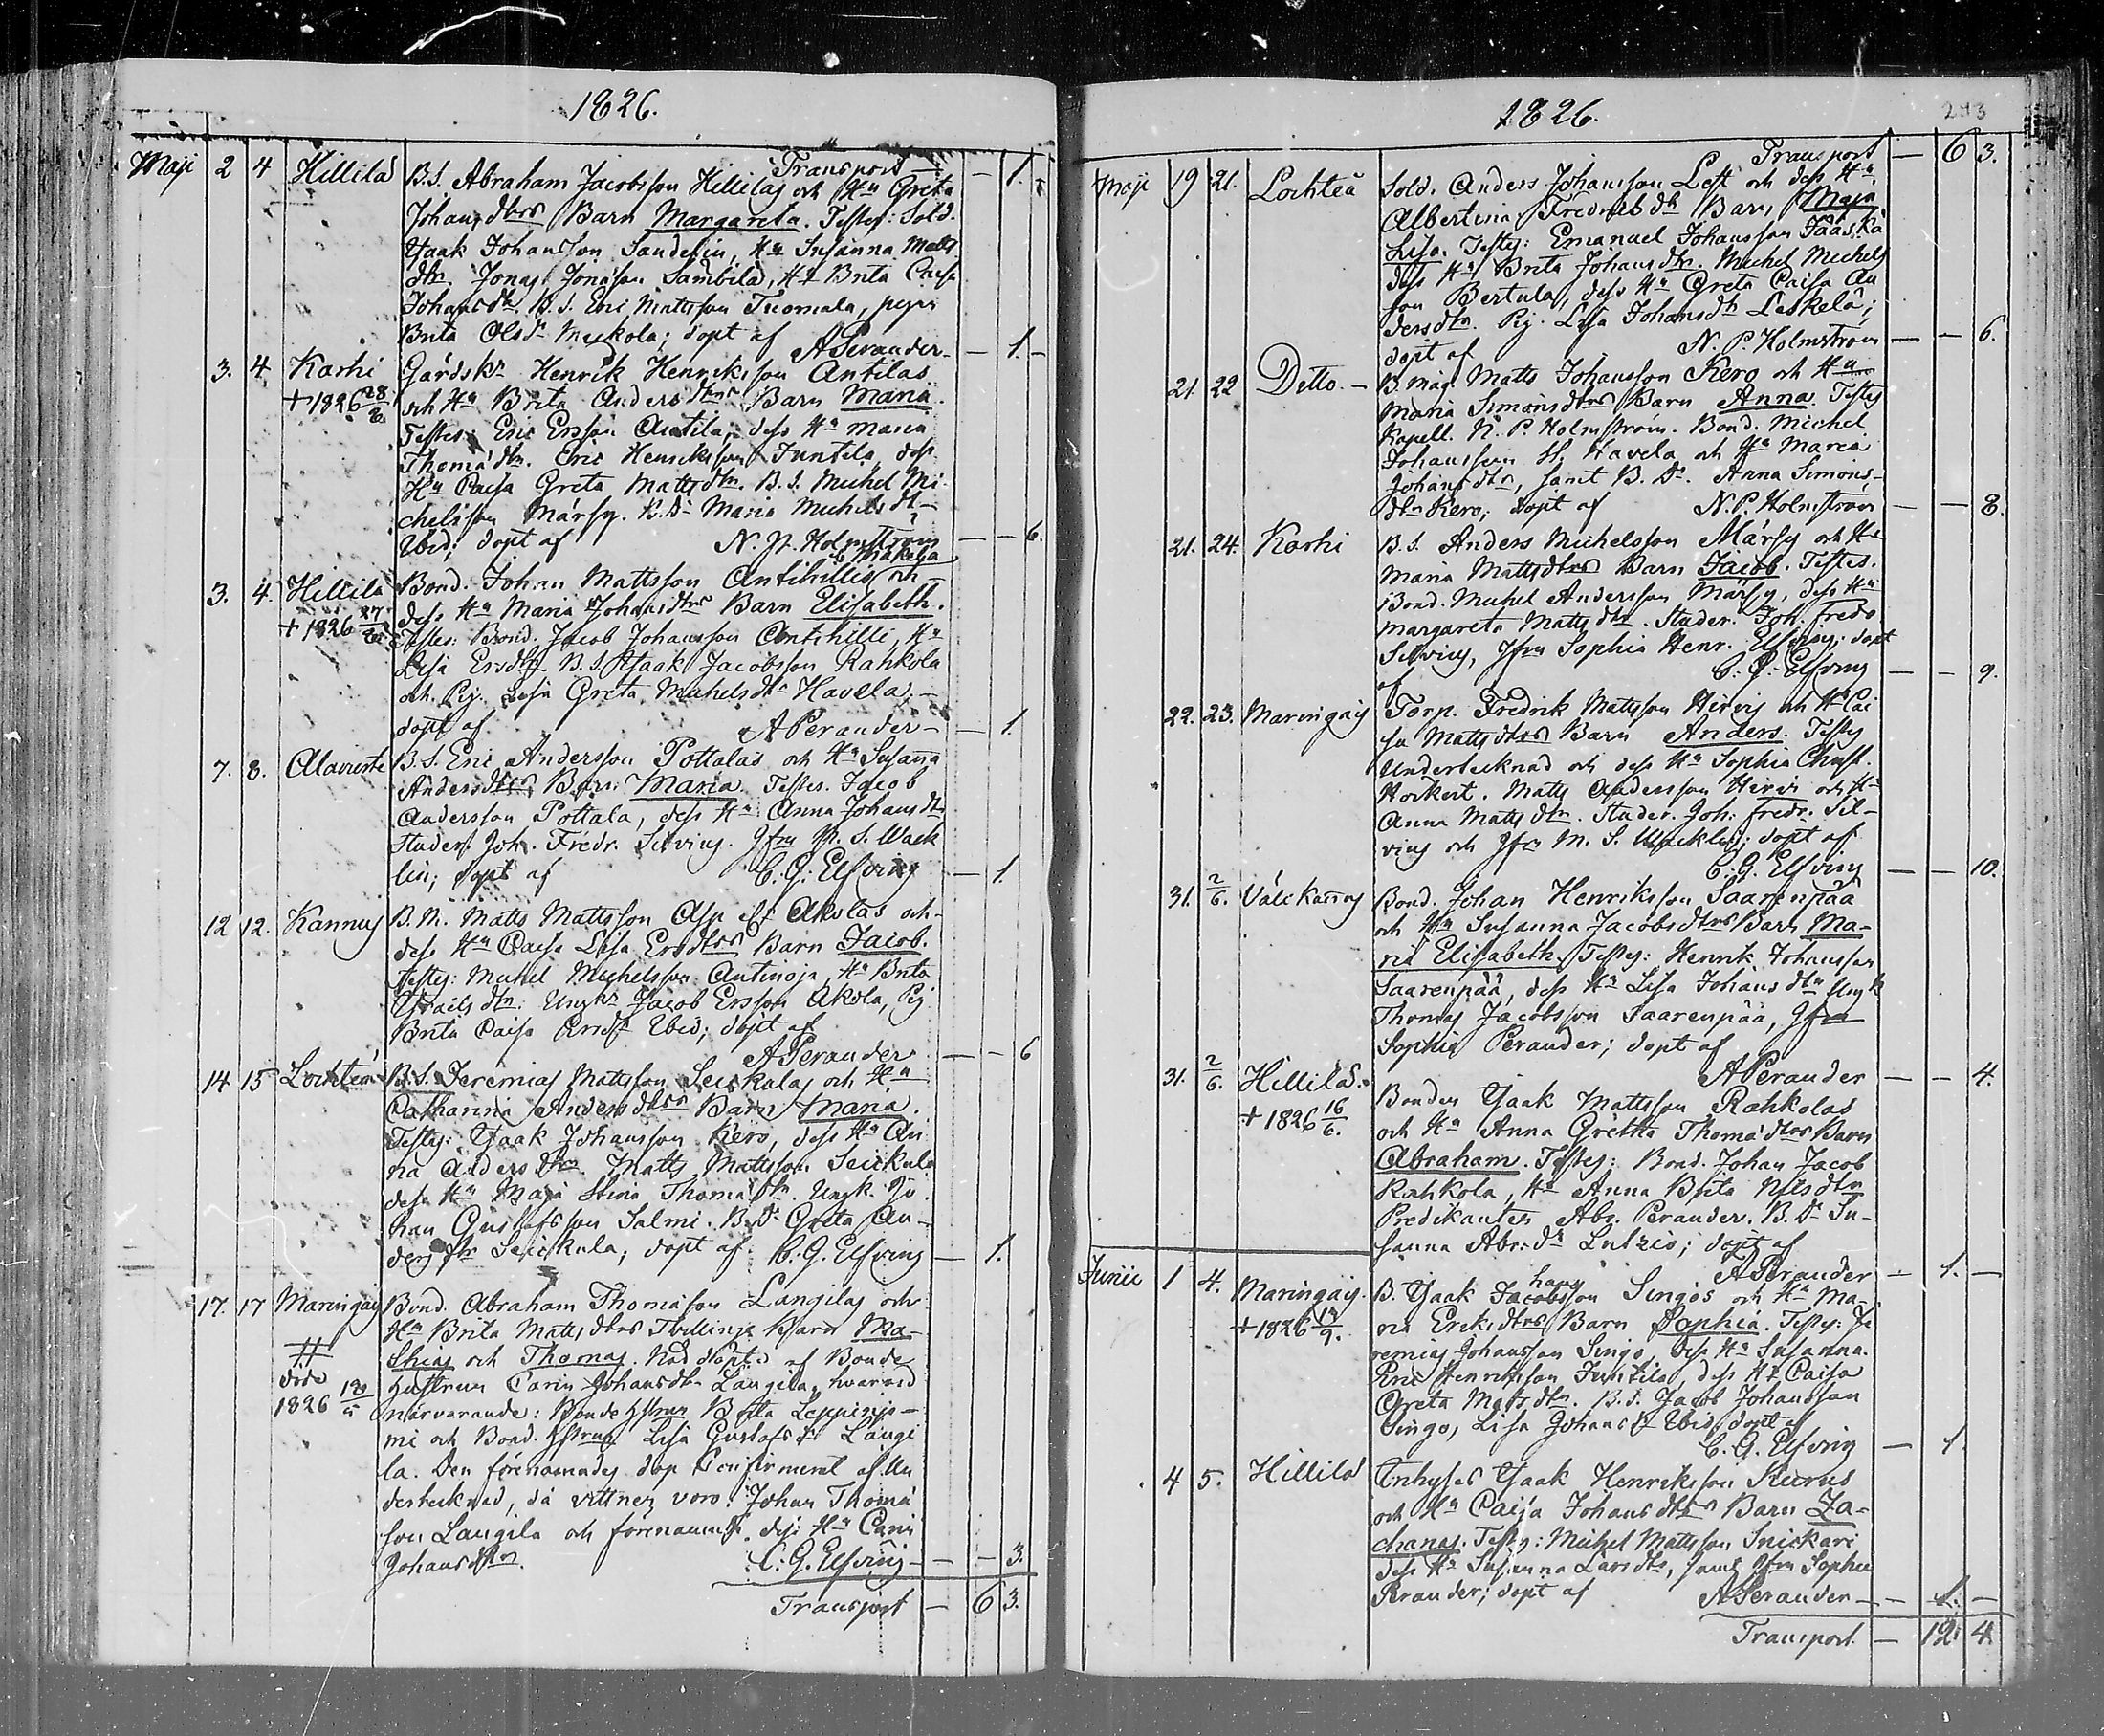 1826.
Transport — 1. –
Maji 2 4 Hillilä B.S. Abraham Jacobsson Hillilas och Hu Greta
Johansdtrs Barn Margareta. Testes: Sold.
Isaak Johansson Sandelin, Hu Susanna Matts
dtr. Jonas Jonasson Sambila, Hu Brita Caisa
Johansdtr. B.S. Eric Mattsson Tuomala, pigan
Brita Olsdr Meckola; döpt af APerander — 1. –
3. 4 Karhi Gårdskr Henrik Henriksson Antilas
+ 1826 28/2. och Hu Brita Andersdtrs Barn Maria.
Testes: Eric Ersson Antila, dess Hu Maria
Thomædtr. Eric Henriksson Juntila, dess
Hu Caisa Greta Mattsdtr. B.S. Michel Mi-
chelsson Märsy. B.Dr Maria Michelsdtr
Ibid; döpt af N. P. Holmström — – 6.
3. 4. Hillilä Bond. Johan Mattsson Antihillis och
+ 1826 dess Hu Maria Johansdtrs Barn Elisabeth.
Testes: Bond. Jacob Johansson Antihilli, Hu
Lisa Ersdtr. B.S. Isaak Jacobsson Rahkola
och Pig. Lisa Greta Michelsdtr Havela. –
döpt af APerander – — 1.
7. 8. Alaviirte B.S. Eric Andersson Pottalas och Hu Susanna
Andersdtrs Barn Maria. Testes. Jacob
Andersson Pottala, dess Hu Anna Johansdtr
Studer. Joh. Fredr. Silving. Jfru M. S. Wack
lin; döpt af C. G. Elfving — 1.
12 12. Kannus B. M. Matts Mattsson Asp Akolas och
dess Hu Caisa Lisa Ersdtrs Barn Jacob.
Testes: Michel Michelsson Antinoja, Hu Brita
Isaksdtr. Ungkr Jacob Ersson Akola, Pig.
Brita Caisa Ersdr Ibid; döpt af
APerander — – 6
14 15 Lochteå B.S. Jeremias Mattsson Seickalas och Hu
Catharina Andersdtrs Barn Maria.
Testes: Isaak Johansson Kero, dess Hu An
na Andersdtr. Matts Mattsson Seickula
dess Hu Maja Stina Thomædtr. Ungk. Jo
han Gustafsson Salmi. B.Dr Greta An-
dersdtr Seickula; döpt af C. G. Elfving — 1.
17. 17 Maringais Bond. Abraham Thomasson Langilas och
Hu Brita Mattsdtrs Tvillinge Barn Ma-
++ thias och Thomas. Nöd döpte af Bonde
döde Hustrun Carin Johansdtr Langila, hvarvid
1826 närvarande: Bonde Hstrun Brita Leppinie-
mi och Bond. Hstrun Lisa Gustafsdr Langi
la. Den förenämndes dop Confirmerat af Un
dertecknad, då vittnen voro: Johan Thomæ
son Langila och förenämnde dess Hu Carin
Johansdtr. C. G. Elfving – — – 3.
Transport — 6 3.
1826. 293
Transport — 6 3.
Maji 19 21. Lochteå Sold. Anders Johansson Løst och dess Hu
Albertina Fredriksdtr Barn Maja
Lisa. Testes: Emanuel Johansson Jääskä
dess Hu Brita Johansdtr. Michel Michels
son Bertula, dess Hu Greta Caisa An
dersdtr. Pig. Lisa Johansdtr Leskelä;
döpt af N. P. Holmström — – 6.
21. 22 Ditto. – B. måg. Matts Johansson Kero och Hu
Maria Simonsdtrs Barn Anna. Testes
Kapell. N. P. Holmström. Bond. Michel
Johansson Havela och Hu Maria
Johansdtr, samt B. Dr. Anna Simons-
dtr Kero; döpt af N. P. Holmström — – 8.
21. 24. Karhi B.S. Anders Michelsson Märsy och Hu
Maria Mattsdtrs Barn Jacob. Testes.
Bond. Michel Andersson Märsy, dess Hu
Margareta Mattsdtr. Studer. Joh. Fredr
Silving, Jfru Sophia Henr. Elfving; döpt
af C. G. Elfving — – 9.
22. 23. Maringais Torp. Fredrik Mattsson Hirvis och Hu Cai
sa Mattsdtrs Barn Anders. Testes
Undertecknad och dess Hu Sophia Christ.
Horkert. Matts Andersson Hirvi och Hu
Anna Mattsdtr. Studer. Joh. Fredr. Sil-
ving och Jfru M. S. Wacklin; döpt af
C. G. Elfving — – 10.
31. 2/6. Välikannus Bond. Johan Henriksson Saarenpää
och Hu Susanna Jacobsdtrs Barn Ma-
ria Elisabeth. Testes: Henrik Johansson
Saarenpää, dess Hu Lisa Johansdtr Ungk
Thomas Jacobsson Saarenpää, Jfru
Sophia Perander; döpt af
APerander — – 4.
31. 2/6. Hilliläs. Bonden Isaak Mattsson Rahkolas
+ 1826 16/6. och Hu Anna Gretha Thomædtrs Barn
Abraham. Testes: Bond. Johan Jacob
Rahkola, Hu Anna Brita Nilsdtr
Predikanten Abr. Perander. B. Dr Su-
sanna Abr:dr Lutzio; döpt af
APerander — 1. —
Junii 1 4. Maringais. B. Isaak Johansson Singos och Hu Ma-
+ 1826 ria Eriksdtrs Barn Sophia. Testes: Je
remias Johansson Singo, dess Hu Susanna.
Eric Henriksson Juntila, dess Hu Caisa
Greta Mattsdtr. B.S. Jacob Johansson
Singo, Lisa Johansdr Ibid; döpt af
C. G. Elfving — 1.
4 5. Hillilä Inhyses Isaak Henriksson Kiurus
och Hu Caisa Johansdtrs Barn Za-
charias. Testes: Michel Mattsson Snickari
dess Hu Susanna Larsdtr, samt Jfru Sophia
Perander; döpt af APerander — 1. –
Transport — 12 4